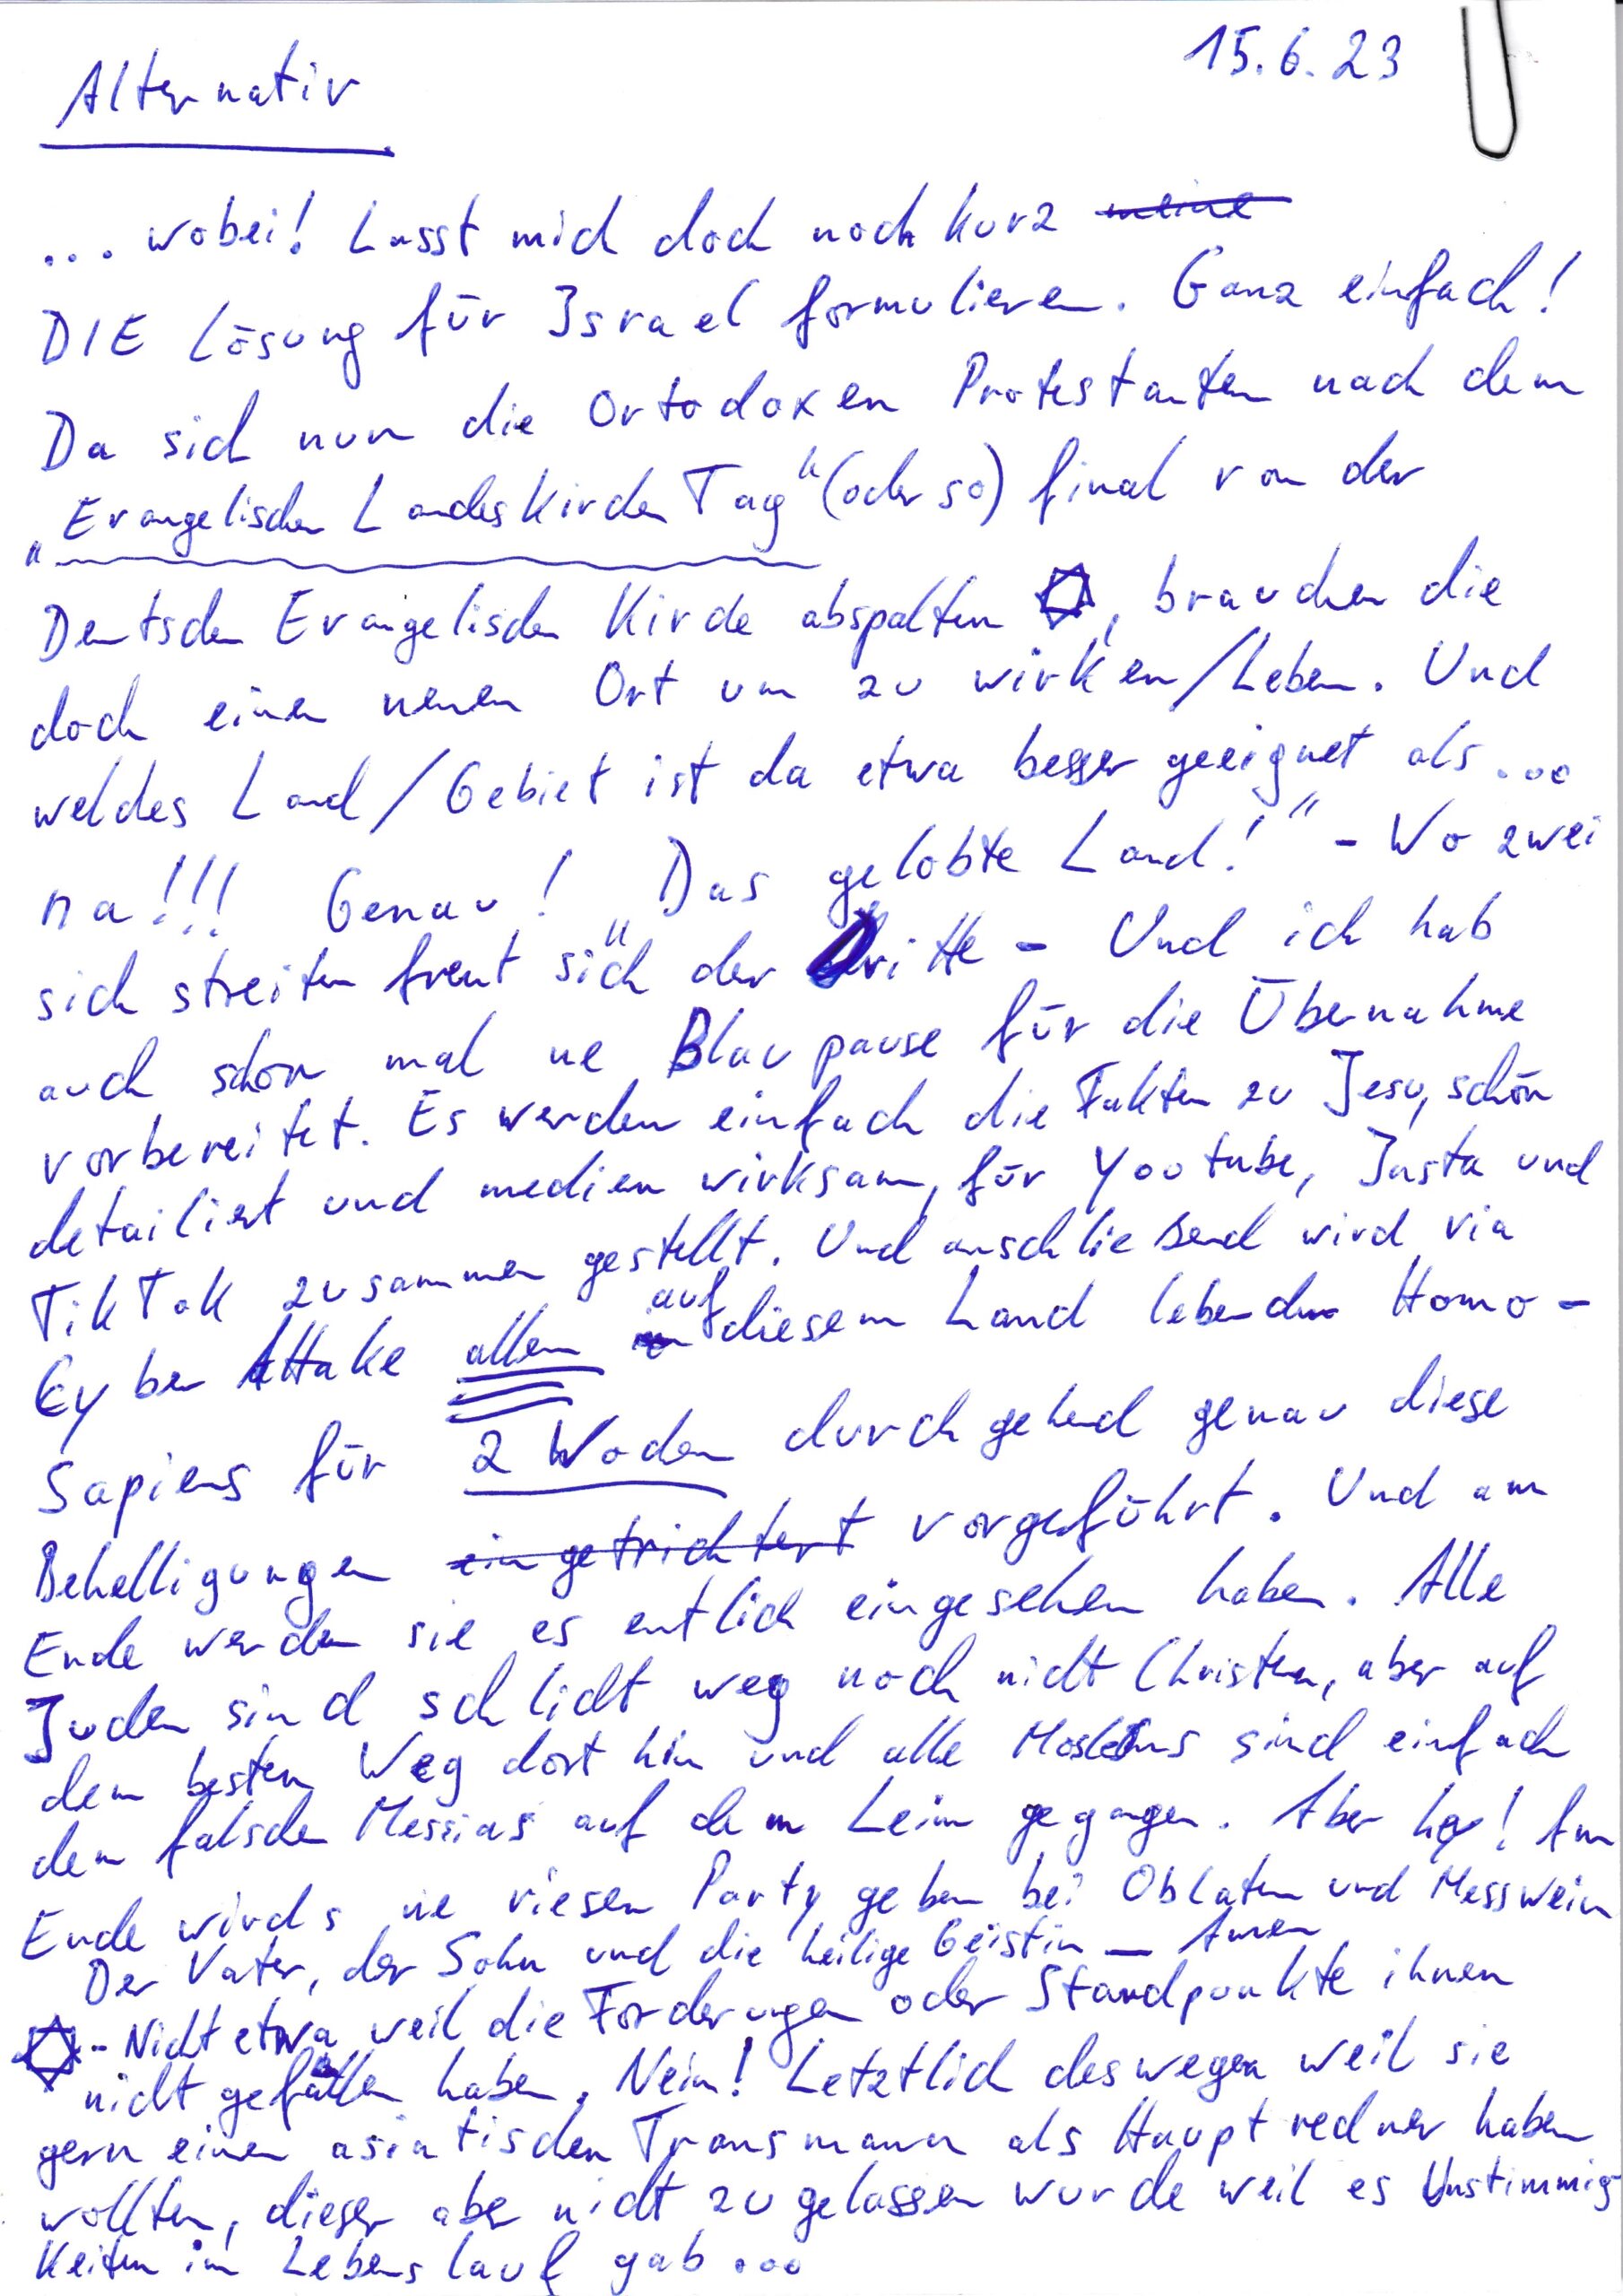 15.6.23
Alternativ
... wobei! Lasst mich doch noch kurz meine
DIE Lösung für Israel formulieren. Ganz einfach!
Da sich nun die Ortodoxen Protestanten nach dem
"Evangelischen LandesKirchenTag" (oder so) final von der
Deutschen Evangelischen Kirche abspalten ✡, brauchen die
doch einen neuen Ort um zu wirken/Leben. Und
welches Land/Gebiet ist da etwa besser geeignet als...
na!!! Genau! "Das gelobte Land!" - Wo zwei
sich streiten freut sich der Dritte - Und ich hab
auch schon mal ne Blaupause für die Übernahme
vorbereitet. Es werden einfach die Fakten zu Jesu, schön
detailiert und medien wirksam, für Yootube, Insta und
TikTok zusammen gestellt. Und anschließend wird via
Cyber Attake allen auf diesem Land lebenden Homo-
Sapiens für 2 Wochen durchgehend genau diese
Behelligungen eingetrichtert vorgeführt. Und am
Ende werden sie es entlich eingesehen haben. Alle
Juden sind schlicht weg noch nicht Christen, aber auf
dem besten Weg dort hin und alle Moslems sind einfach
dem falschen Messias auf dem Leim gegangen. Aber hey! Am
Ende wirds ne riesen Party geben bei Oblaten und Messwein
Der Vater, der Sohn und die heilige Geistin — Amen
✡ - Nicht etwa weil die Forderungen oder Standpunkte ihnen
nicht gefallen haben. Nein! Letztlich deswegen weil sie
gern einen asiatischen Transmann als Hauptredner haben
wollten, dieser aber nicht zugelassen wurde weil es Unstimmig
Keiten im Lebenslauf gab...